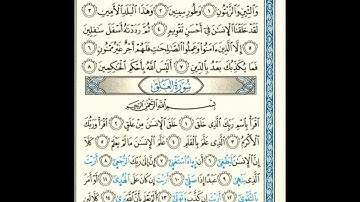 وَالتِّينِ وَالزَّيْتُونِ ١ وَطُورِ سِينِينَ ٢ وَهَٰذَا الْبَلَدِ الْأَمِينِ ٣
لَقَدْ خَلَقْنَا الْإِنسَانَ فِي أَحْسَنِ تَقْوِيمٍ ٤ ثُمَّ رَدَدْنَاهُ أَسْفَلَ سَافِلِينَ
٥ إِلَّا الَّذِينَ آمَنُوا وَعَمِلُوا الصَّالِحَاتِ فَلَهُمْ أَجْرٌ غَيْرُ مَمْنُونٍ ٦
فَمَا يُكَذِّبُكَ بَعْدُ بِالدِّينِ ٧ أَلَيْسَ اللَّهُ بِأَحْكَمِ الْحَاكِمِينَ ٨
سُورَةُ الْعَلَقِ
بِسْمِ اللَّهِ الرَّحْمَٰنِ الرَّحِيمِ
اقْرَأْ بِاسْمِ رَبِّكَ الَّذِي خَلَقَ ١ خَلَقَ الْإِنسَانَ مِنْ عَلَقٍ ٢ اقْرَأْ وَرَبُّكَ
الْأَكْرَمُ ٣ الَّذِي عَلَّمَ بِالْقَلَمِ ٤ عَلَّمَ الْإِنسَانَ مَا لَمْ يَعْلَمْ ٥ كَلَّا إِنَّ
الْإِنسَانَ لَيَطْغَىٰ ٦ أَن رَّآهُ اسْتَغْنَىٰ ٧ إِنَّ إِلَىٰ رَبِّكَ الرُّجْعَىٰ ٨ أَرَأَيْتَ
الَّذِي يَنْهَىٰ ٩ عَبْدًا إِذَا صَلَّىٰ ١٠ أَرَأَيْتَ إِن كَانَ عَلَى الْهُدَىٰ ١١ أَوْ أَمَرَ
بِالتَّقْوَىٰ ١٢ أَرَأَيْتَ إِن كَذَّبَ وَتَوَلَّىٰ ١٣ أَلَمْ يَعْلَم بِأَنَّ اللَّهَ يَرَىٰ ١٤ كَلَّا